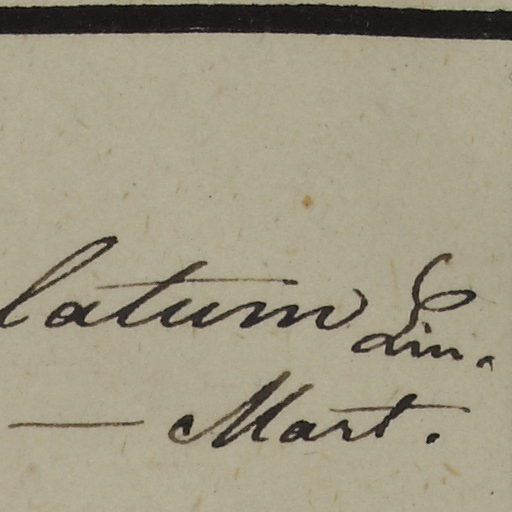 latum Lin.
— Mart.